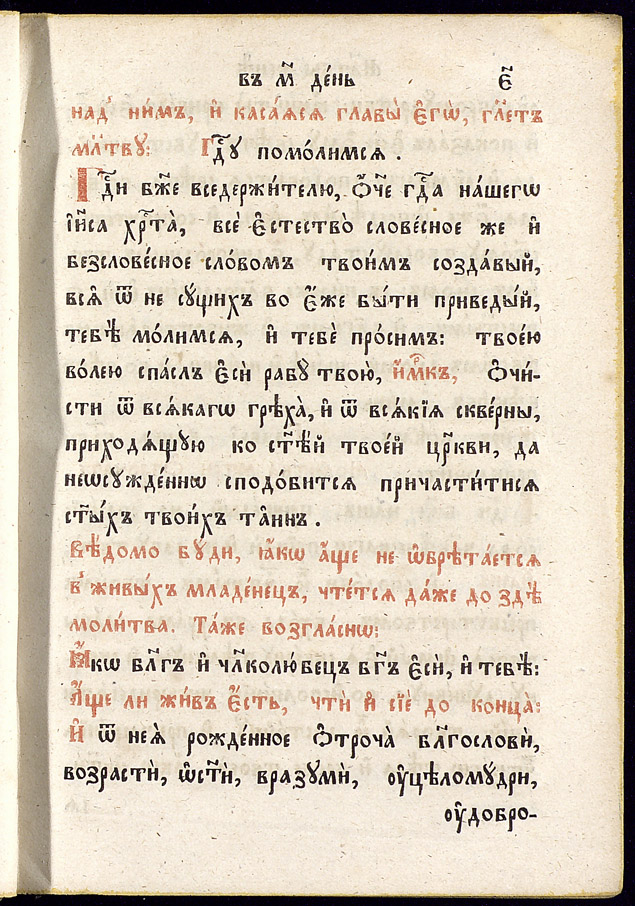 въ м҃ де́нь є҃
над̾ ни́мъ, и҆ каса́ѧсѧ главы̀ є҆гѡ̀, гл҃етъ
мл҃тву: Гдⷭ҇у помо́лимсѧ .
Гдⷭ҇и бж҃е вседержи́телю, ѻ҆́ч҃е гдⷭ҇а на́шегѡ
і҆и҃са хрⷭ҇та̀, всѐ є҆стество̀ слове́сное же и҆
безслове́сное сло́вомъ твои́мъ созда́вый,
всѧ̑ ѿ не су́щихъ во є҆́же бы́ти приведы́й,
тебѣ̀ мо́лимсѧ, и҆ тебѐ про́симъ: твое́ю
во́лею спа́слъ є҆сѝ рабꙋ̀ твою̀, и҆́мⷬ҇къ, ѡ҆чи́-
сти ѿ всѧ́кагѡ грѣха̀, и҆ ѿ всѧ́кїѧ скве́рны,
приходѧ́щую ко ст҃ѣ́й твое́й цр҃кви, да
неѡсужде́ннѡ сподо́битсѧ причасти́тисѧ
ст҃ы́хъ твои́хъ та̑инъ .
Вѣ́домо бу́ди, ꙗ҆́кѡ а҆́ще не ѡ҆брѣта́етсѧ
в̾ живы́хъ младе́нецъ, чте́тсѧ да́же до здѣ̀
моли́тва. Та́же возгла́снѡ:
Ꙗ҆́кѡ бл҃гъ и҆ чл҃колю́бецъ бг҃ъ є҆сѝ, и҆ тебѣ̀:
А҆́ще ли жи́въ є҆́сть, чтѝ и҆ сїѐ до конца̀:
И҆ ѿ неѧ̀ рожде́нное ѻ҆троча̀ бл҃гословѝ,
возрастѝ, ѡ҆ст҃ѝ, вразумѝ, ѹ҆цѣлому́дри,
ѹ҆добро-